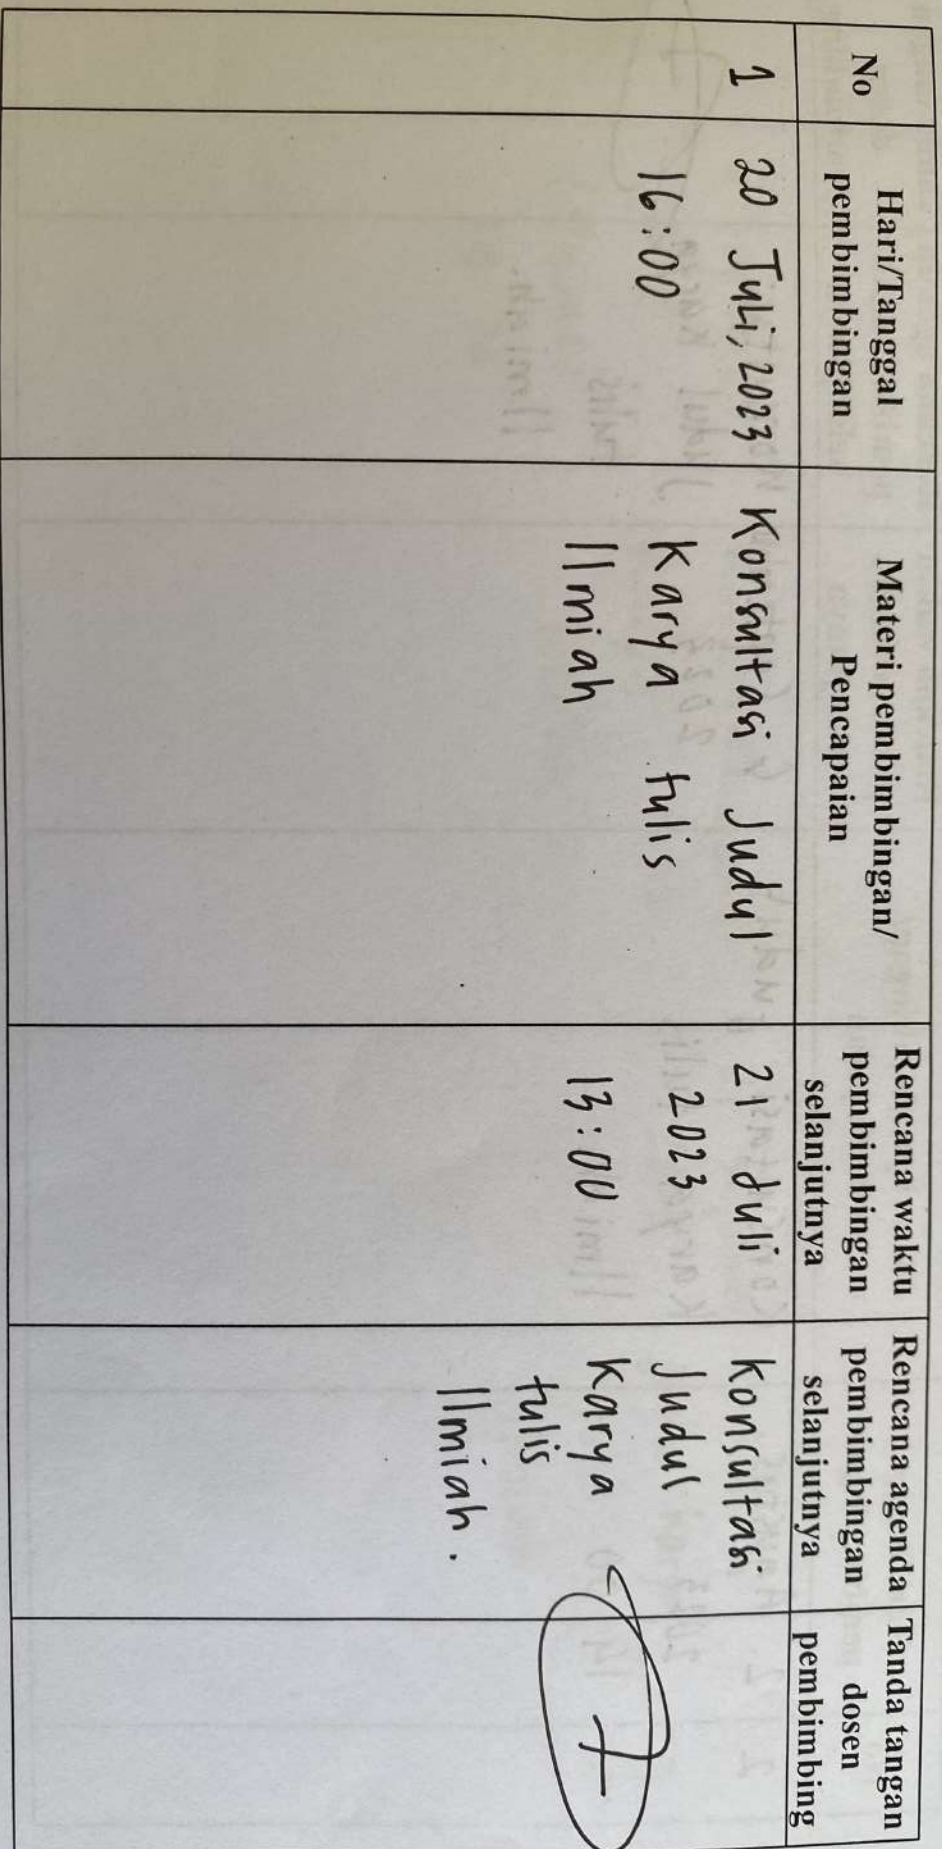 No
Hari/Tanggal
pembimbingan
Materi pembimbingan/
Pencapaian
Rencana waktu
pembimbingan
selanjutnya
Rencana agenda
pembimbingan
selanjutnya
Tanda tangan
dosen
pembimbing
1
20 Juli, 2023
16:00
Konsultasi Judul
Karya tulis
Ilmiah
21 Juli
2023
13:00
Konsultasi
Judul
Karya
tulis
Ilmiah.